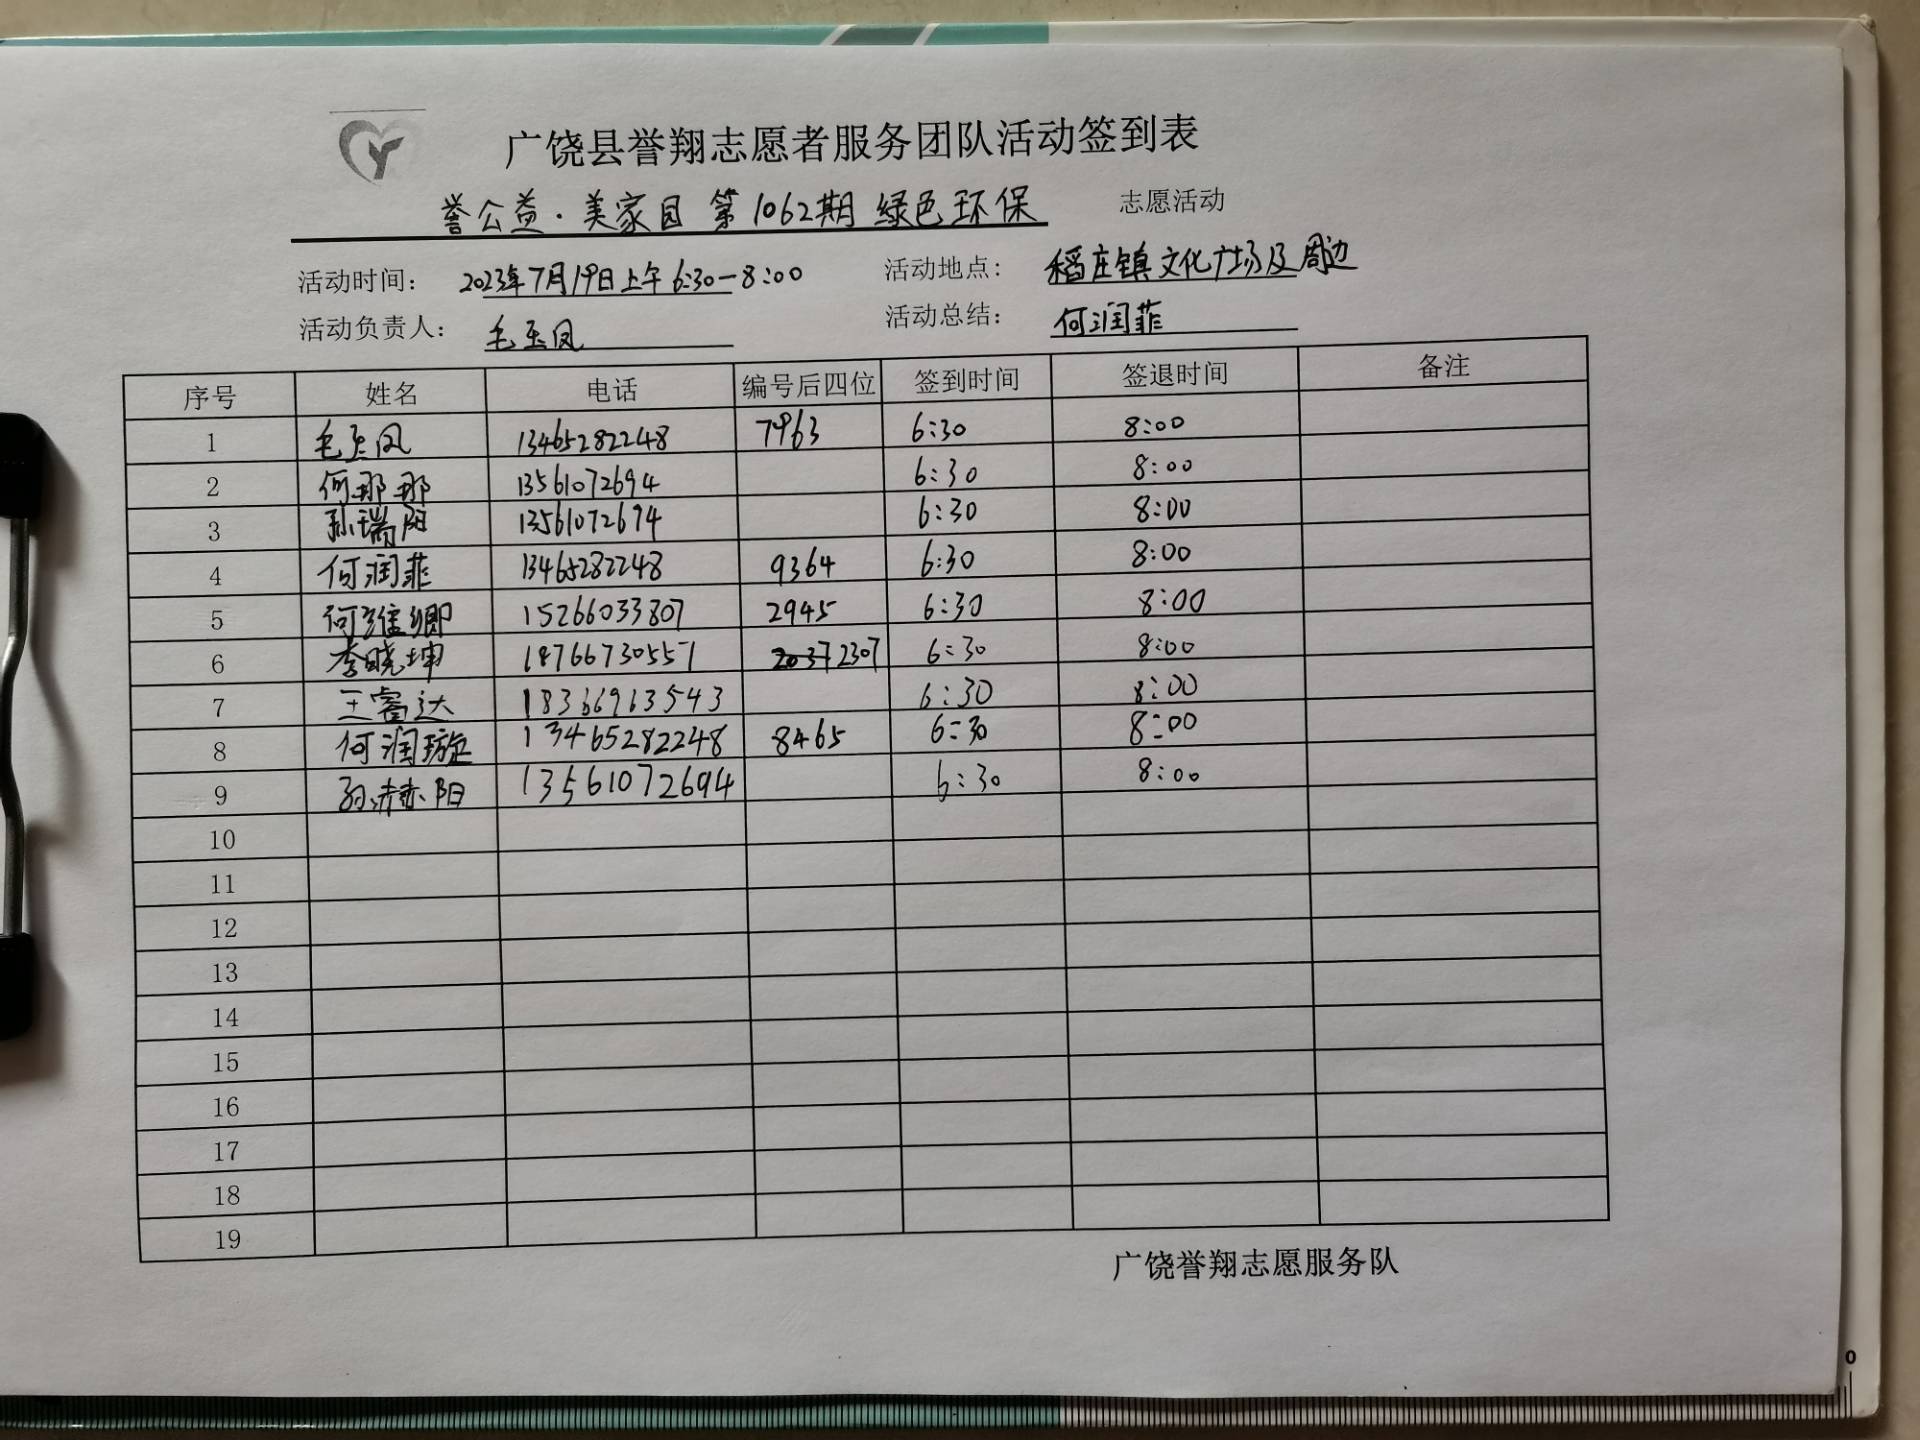 广饶县誉翔志愿者服务团队活动签到表
誉公益·美家园 第1062期 绿色环保 志愿活动
活动时间: 2023年7月19日上午6:30-8:00 活动地点: 稻庄镇文化广场及周边
活动负责人: 毛玉凤 活动总结: 何润菲
序号 姓名 电话 编号后四位 签到时间 签退时间 备注
1 毛玉凤 13465282248 7963 6:30 8:00
2 何那那 13561072694 6:30 8:00
3 孙瑞阳 13561072694 6:30 8:00
4 何润菲 13465282248 9364 6:30 8:00
5 何维卿 15266033807 2945 6:30 8:00
6 李晓坤 18766730557 2307 6:30 8:00
7 王睿达 18366963543 6:30 8:00
8 何润璇 13465282248 8465 6:30 8:00
9 孙赫阳 13561072694 6:30 8:00
10
11
12
13
14
15
16
17
18
19
广饶誉翔志愿服务队
0